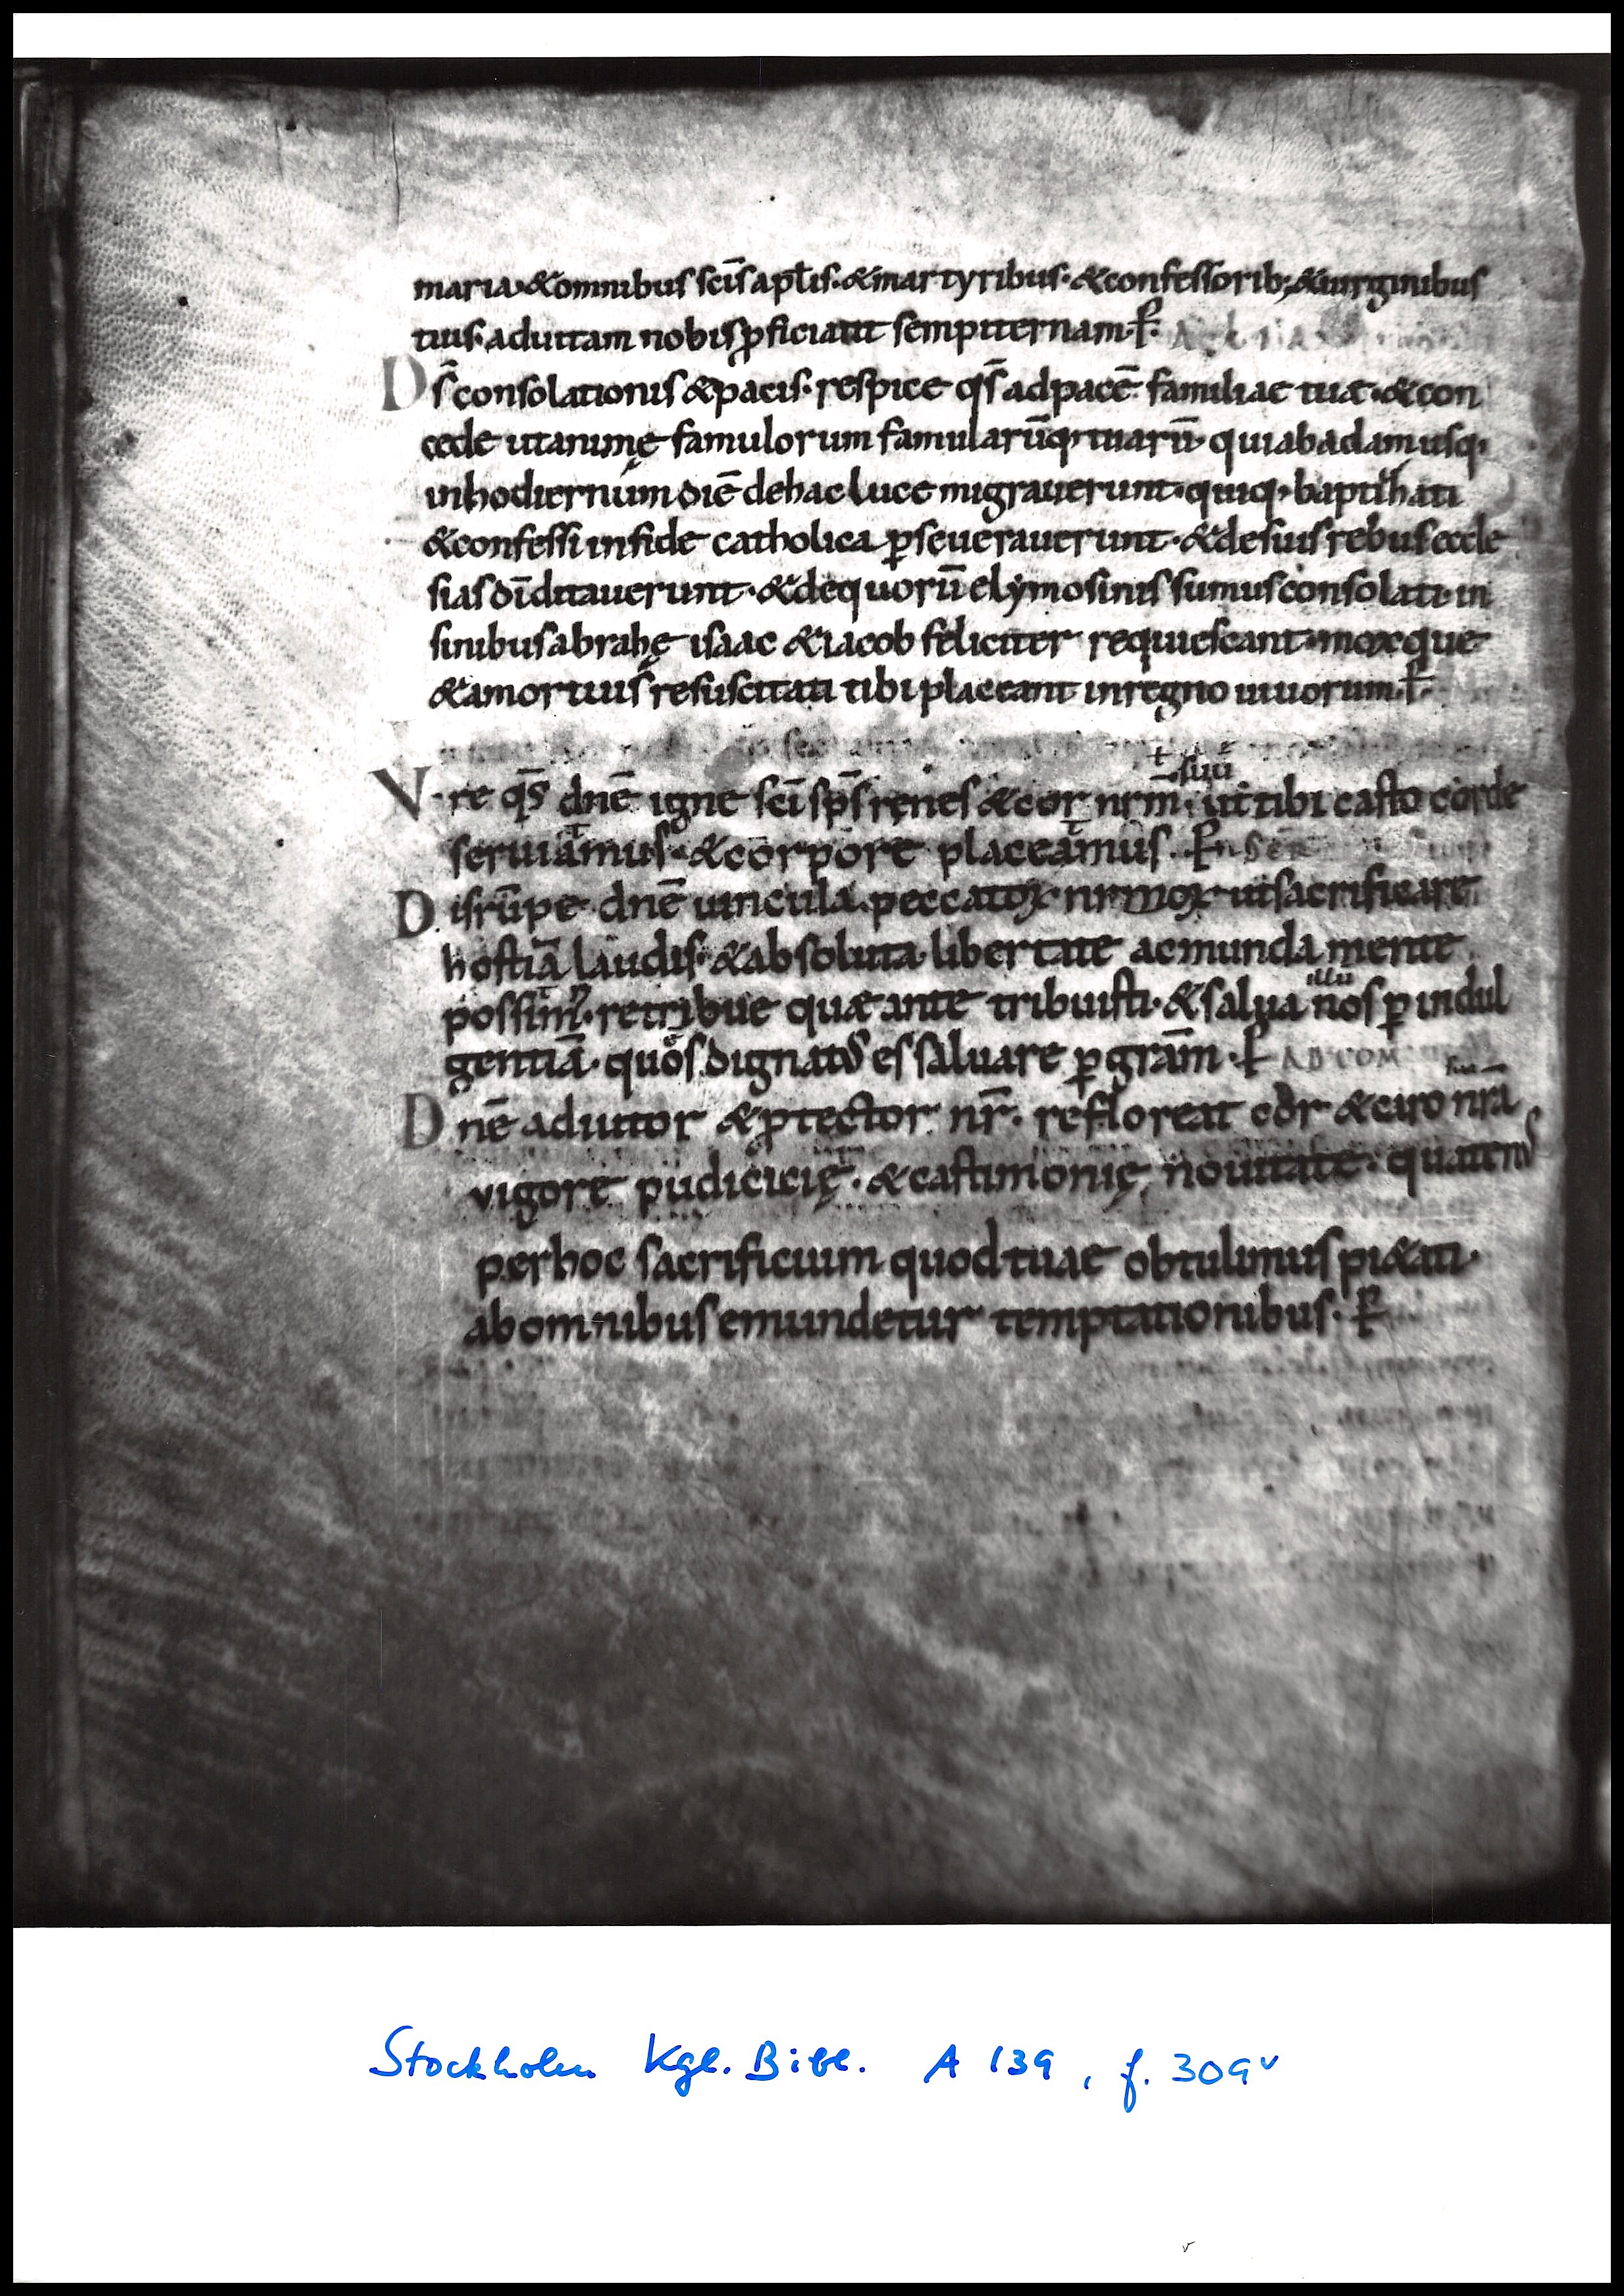 maria·&omnibus sc̄is apłis·&martyribus·&confessorib;·&uirginibus
tuis·aduitam nobis ꝓficiant sempiternam·P̄·
Ds̄ consolationis &pacis·respice qs̄ adpacē familiae tuæ·&con
cede utanimę famulorum famularūq· tuarū· quiabadam usq·
inhodiernum diē dehac luce migrauerunt·quiq· baptizati
&confessi infide catholica ꝑseuerauerunt·&desuis rebus eccle
sias dī ditauerunt·&dequorū elymosinis sumus consolati·in
sinibus abrahę isaac &iacob feliciter requiescant·moxque
&amortuis resuscitati tibi placeant inregno uiuorum·P̄·
suū
V·re qs̄ dnē igne sc̄i sp̄s renes &cor nrm̄· ut tibi casto corde
seruiamus·&corpore placeamus·P̄
Disrūpe dnē uincula peccatoꝝ nrmoꝝ utsacrificare
hostiā laudis·&absoluta libertate acmunda mente
illū
possim̉·retribue quæ ante tribuisti·&salua nos ꝑ indul
gentiā·quos dignatꝰ es saluare ꝑ grām·P̄ AD COM
Dnē adiutor &ꝓtector nr̄· refloreat cor &caro nrā
vigore pudicicię·&castimonię nouitate·quatenꝰ
perhoc sacrificium quod tuae obtulimus pi&ati·
abomnibus emundetur temptationibus·P̄
Stockholm Kgl. Bibl. A 139, f. 309v